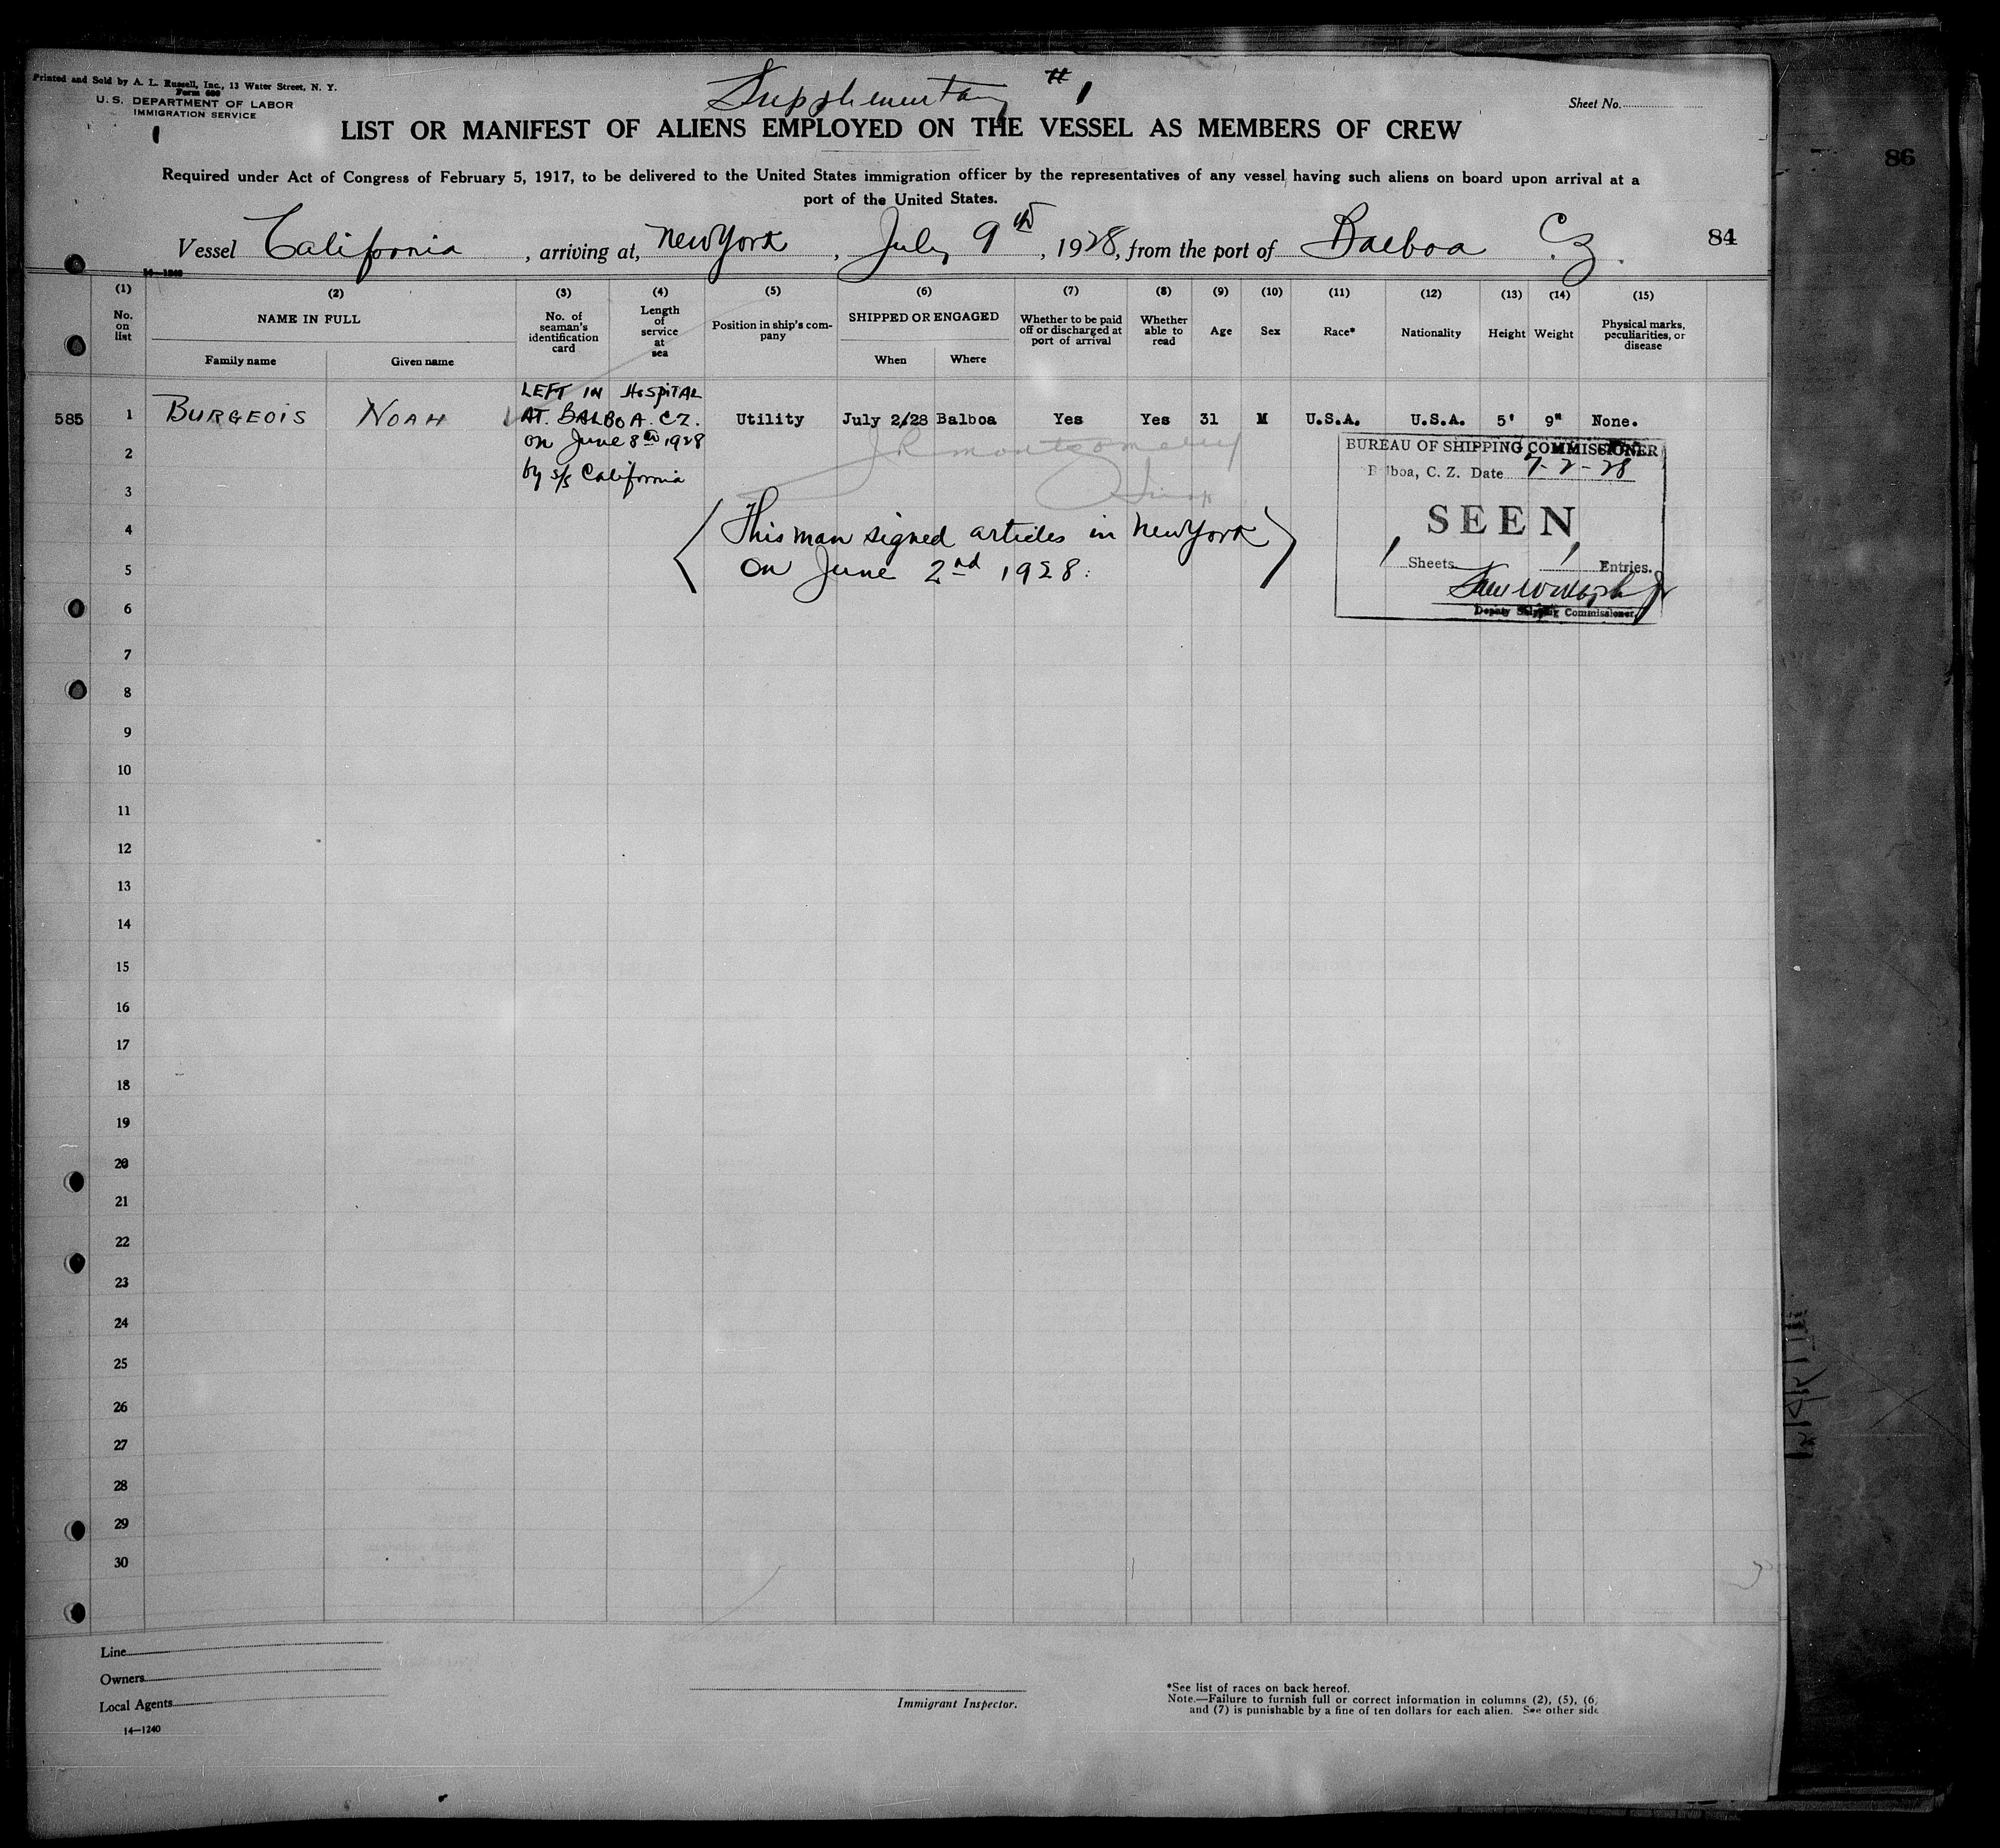 Printed and Sold by A. L. Russell, Inc., 13 Water Street, N. Y.
Form 680
U. S. DEPARTMENT OF LABOR
IMMIGRATION SERVICE
1
Supplementary # 1
Sheet No.
LIST OR MANIFEST OF ALIENS EMPLOYED ON THE VESSEL AS MEMBERS OF CREW
Required under Act of Congress of February 5, 1917, to be delivered to the United States immigration officer by the representatives of any vessel having such aliens on board upon arrival at a
port of the United States.
Vessel California, arriving at, New York, July 9th, 1928, from the port of Balboa C.Z.
84
86
14—1240
(1) (2) (3) (4) (5) (6) (7) (8) (9) (10) (11) (12) (13) (14) (15)
No. on list
NAME IN FULL
Family name
Given name
No. of seaman's identification card
Length of service at sea
Position in ship's company
SHIPPED OR ENGAGED
When
Where
Whether to be paid off or discharged at port of arrival
Whether able to read
Age
Sex
Race*
Nationality
Height
Weight
Physical marks, peculiarities, or disease
585 1 BURGEOIS NOAH Utility July 2/28 Balboa Yes Yes 31 M U.S.A. U.S.A. 5' 9" None.
LEFT IN HOSPITAL
AT. BALBOA. C.Z.
on June 8th 1928
by s/s California
J R Montgomery
(This man signed articles in New York
on June 2nd 1928.)
BUREAU OF SHIPPING COMMISSIONER
Balboa, C. Z. Date 7-2-28
SEEN
1 Sheets 1 Entries.
Deputy Shipping Commissioner.
2
3
4
5
6
7
8
9
10
11
12
13
14
15
16
17
18
19
20
21
22
23
24
25
26
27
28
29
30
Line
Owners
Local Agents
14—1240
Immigrant Inspector.
*See list of races on back hereof.
Note.—Failure to furnish full or correct information in columns (2), (5), (6)
and (7) is punishable by a fine of ten dollars for each alien. See other side